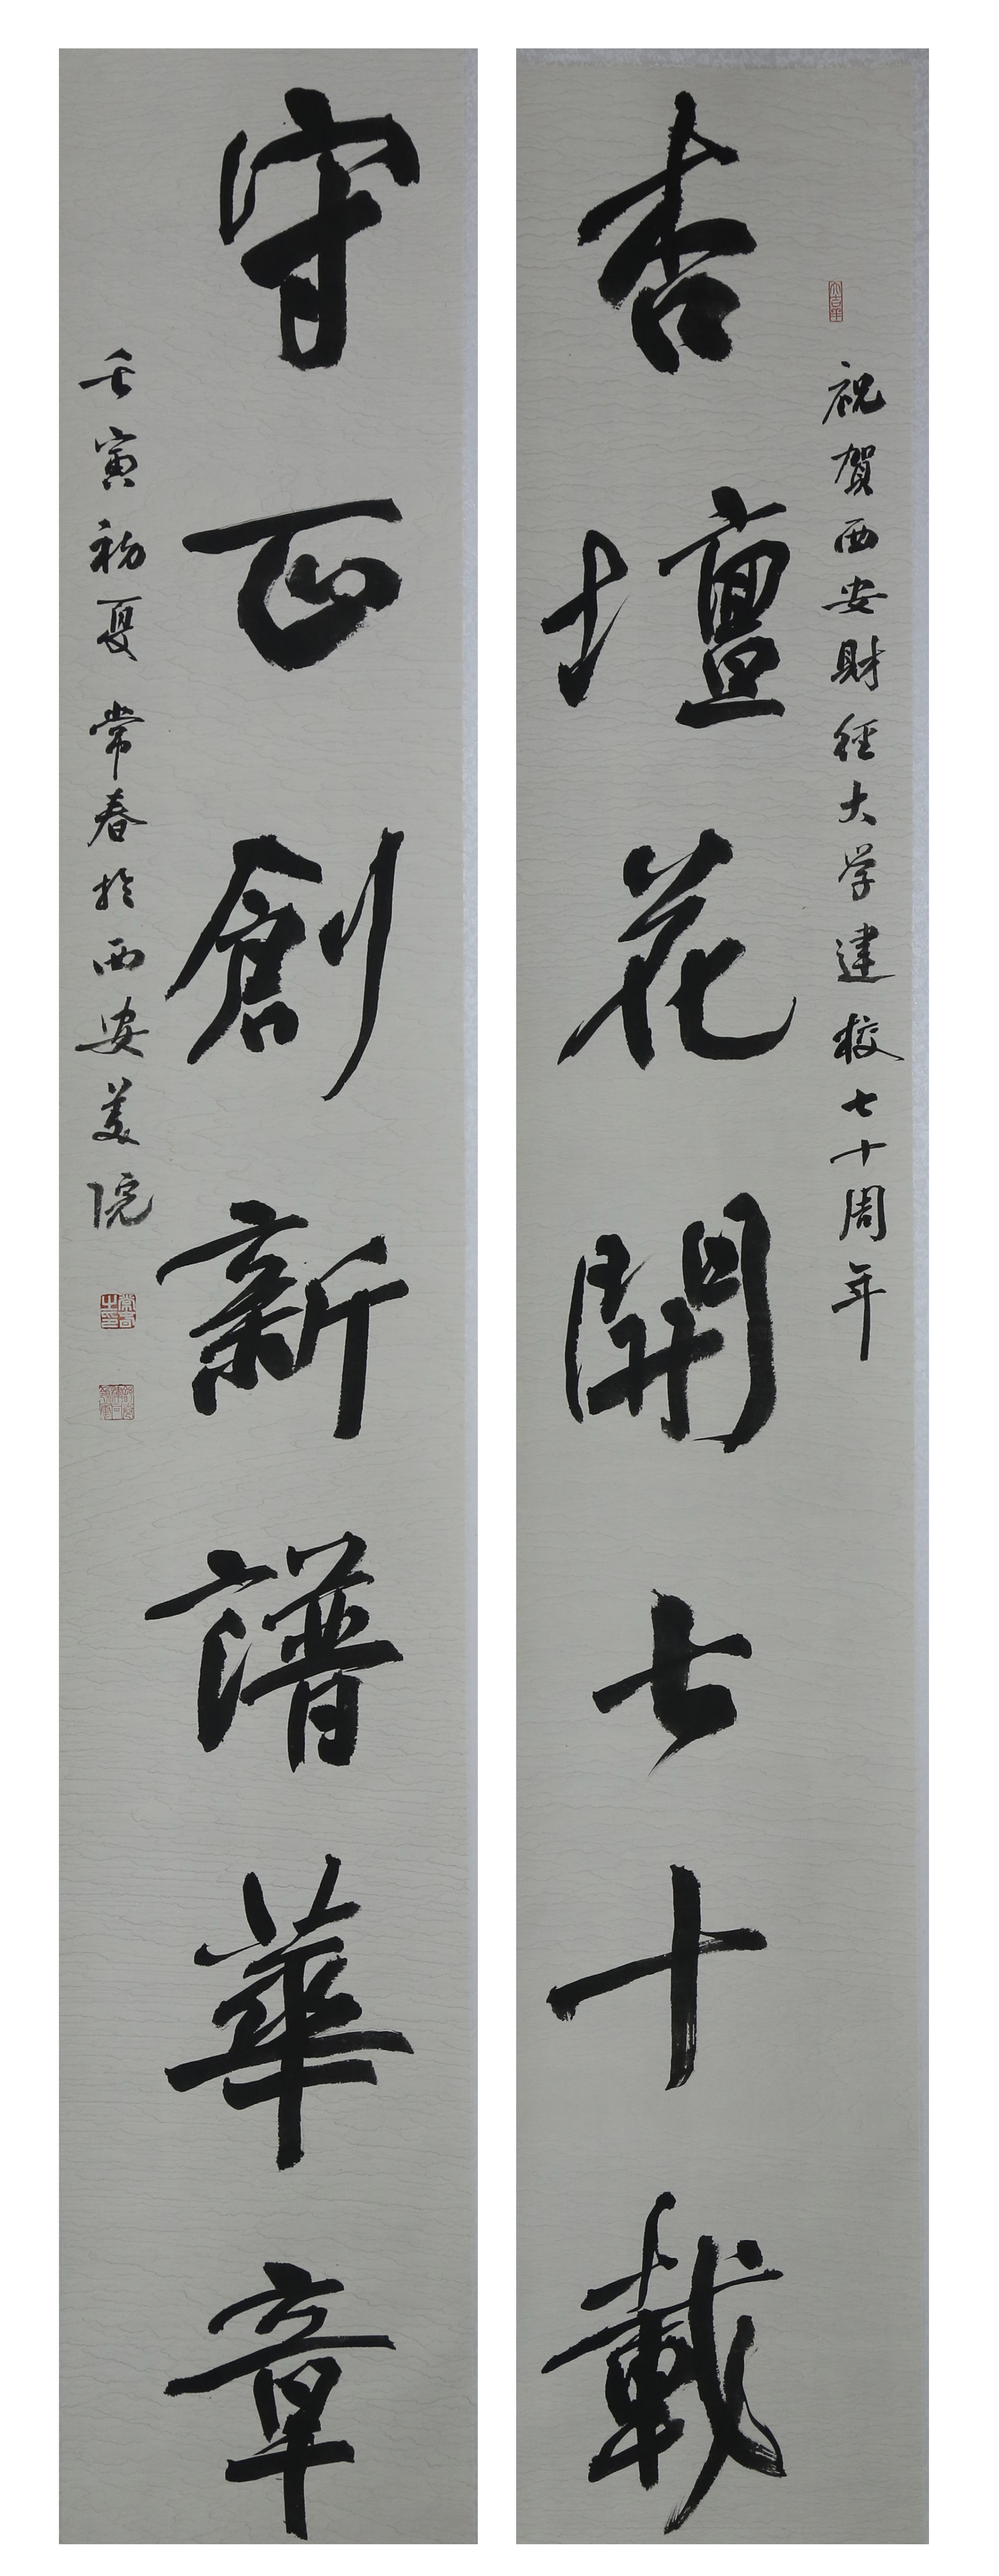 祝賀西安財経大学建校七十周年
杏壇花開七十載
守正創新譜華章
壬寅初夏 常春於西安美院